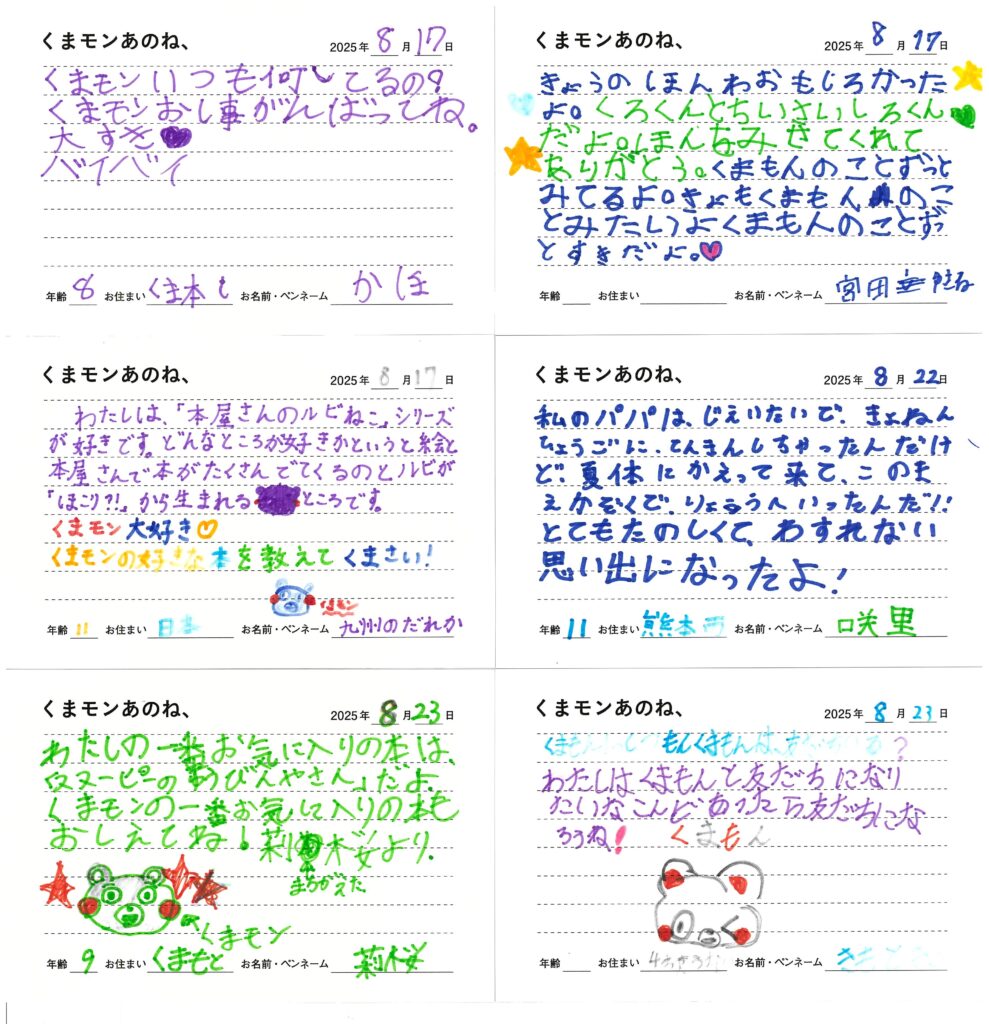 くまモンあのね、
2025年 8 月 17 日
くまモンいつも何してるの?
くまモンお仕事がんばってね。
大すき
バイバイ
年齢 8 お住まい くま本し お名前・ペンネーム かほ
くまモンあのね、
2025年 8 月 17 日
きょうのほんわおもじろかった
よ。くろくんとちいさいしろくん
だよ。ほんなみきてくれて
ありがとう。くまもんのことずっと
みてるよ。きょもくまもんのこ
とみたいよくまもんのことずっ
とすきだよ。
年齢 お住まい お名前・ペンネーム 宮田
くまモンあのね、
2025年 8 月 17 日
わたしは、「本屋さんのルビねこ」シリーズ
が好きです。どんなところが好きかというと絵と
本屋さんで本がたくさんでてくるのとルビが
「ほこり?!」から生まれるところです。
くまモン大好き♡
くまモンの好きな本を教えてくまさい!
くまモン
年齢 11 お住まい 日本 お名前・ペンネーム 九州のだれか
くまモンあのね、
2025年 8 月 22 日
私のパパは、じえいたいで、きょねん
ひょうごに、てんきんしちゃったんだけ
ど、夏休にかえって来て、このま
えかぞくで、りょこうへいったんだ!!
とてもたのしくて、わすれない
思い出になったよ!
年齢 11 お住まい 熊本市 お名前・ペンネーム 咲里
くまモンあのね、
2025年 8 月 23 日
わたしの一番お気に入りの本は、
「スヌーピーのゆうびんやさん」だよ。
くまモンの一番お気に入りの本も
おしえてね!莉桜より.
まちがえた
くまモン
年齢 9 お住まい くまもと お名前・ペンネーム 莉桜
くまモンあのね、
2025年 8 月 23 日
もしくまもんは、
わたしはくまもんと友だちになり
たいなこんどあったら友だちにな
ろうね!
くまもん
年齢 お住まい お名前・ペンネーム